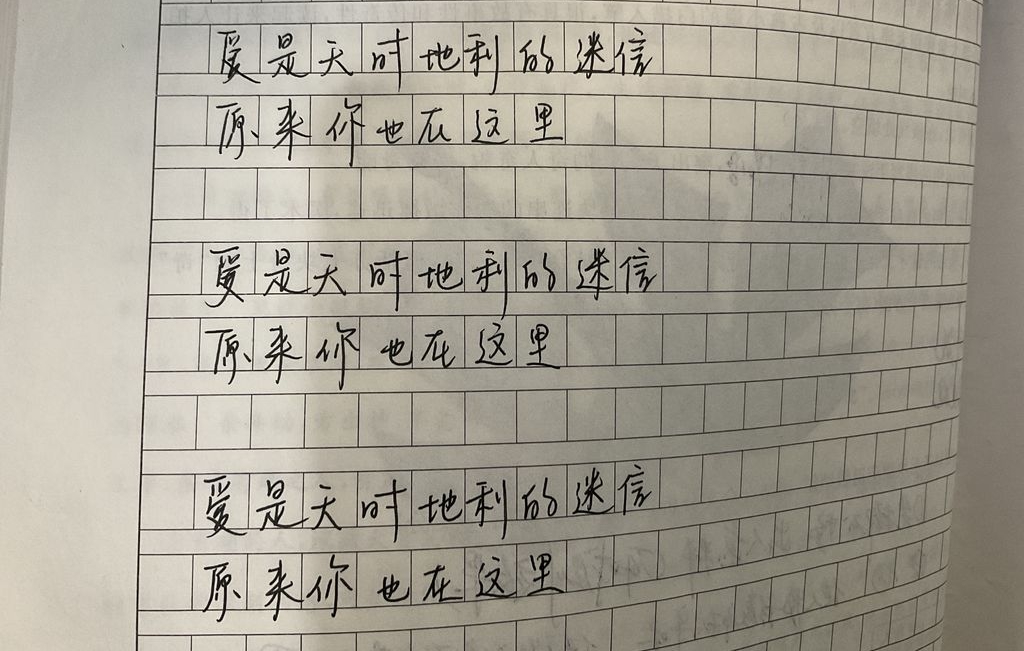 爱是天时地利的迷信
原来你也在这里
爱是天时地利的迷信
原来你也在这里
爱是天时地利的迷信
原来你也在这里